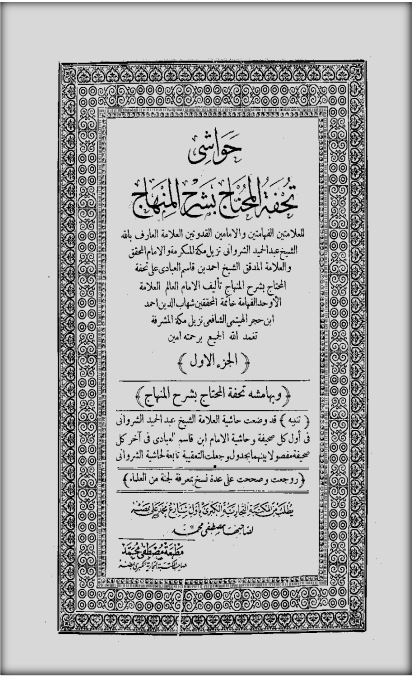 حواشى
تحفة المحتاج بشرح المنهاج
للعلامتين الفهامتين والامامين القدوتين العلامة العارف بالله
الشيخ عبدالحميد الشروانى نزيل مكة المكرمة والامام المحقق
والعلامة المدقق الشيخ احمد بن قاسم العبادى على تحفة
المحتاج بشرح المنهاج تأليف الامام العالم العلامة
الاوحد الفهامة خاتمة المحققين شهاب الدين احمد
ابن حجر الهيتمى الشافعى نزيل مكة المشرفة
تغمد الله الجميع برحمته امين
﴿ الجزء الاول ﴾
﴿ وبهامشه تحفة المحتاج بشرح المنهاج ﴾
﴿ تنبيه ﴾ قد وضعت حاشية العلامة الشيخ عبد الحميد الشروانى
فى أول كل صحيفة وحاشية الامام ابن قاسم العبادى فى آخر كل
صحيفة مفصولا بينهما بجدول وجعلت التعقيبة تابعة لحاشية الشروانى
﴿ روجعت وصححت على عدة نسخ بمعرفة لجنة من العلماء ﴾
يطلب من المكتبة التجارية الكبرى بأول شارع محمد على بمصر
لصاحبها مصطفى محمد
مطبعة مصطفى محمد
صاحب المكتبة التجارية الكبرى بمصر